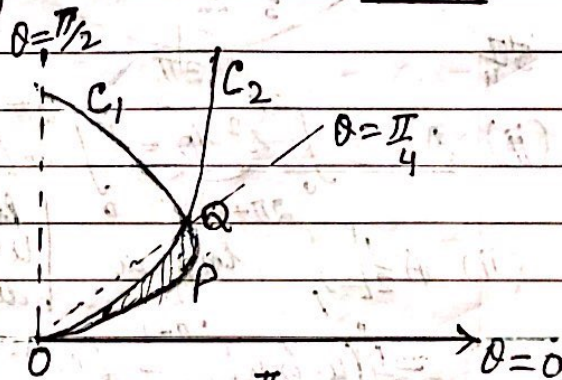 θ=π/2
C₁
C₂
θ=π/4
Q
P
O
θ=0
π